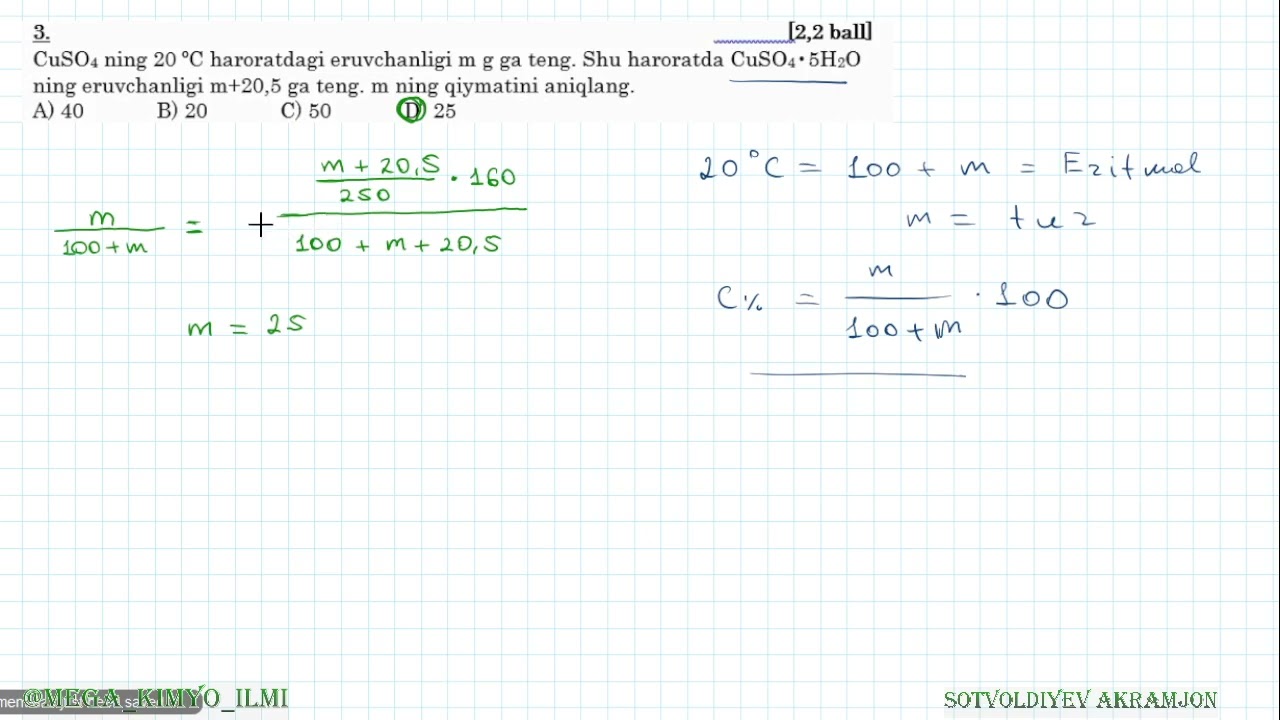 3. [2,2 ball]
CuSO₄ ning 20 ºC haroratdagi eruvchanligi m g ga teng. Shu haroratda CuSO₄•5H₂O
ning eruvchanligi m+20,5 ga teng. m ning qiymatini aniqlang.
A) 40 B) 20 C) 50 D) 25
m + 20,5
250
· 160
m
100 + m
=
100 + m + 20,5
m = 25
20°C = 100 + m = Ezitmal
m = tuz
C% = m
100 + m
· 100
@MEGA_KIMYO_ILMI
SOTVOLDIYEV AKRAMJON